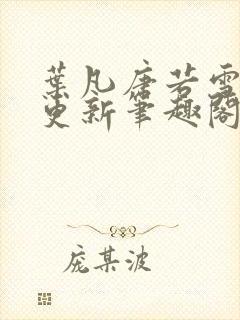 葉凡唐若雪
更新筆趣閣
庞某波